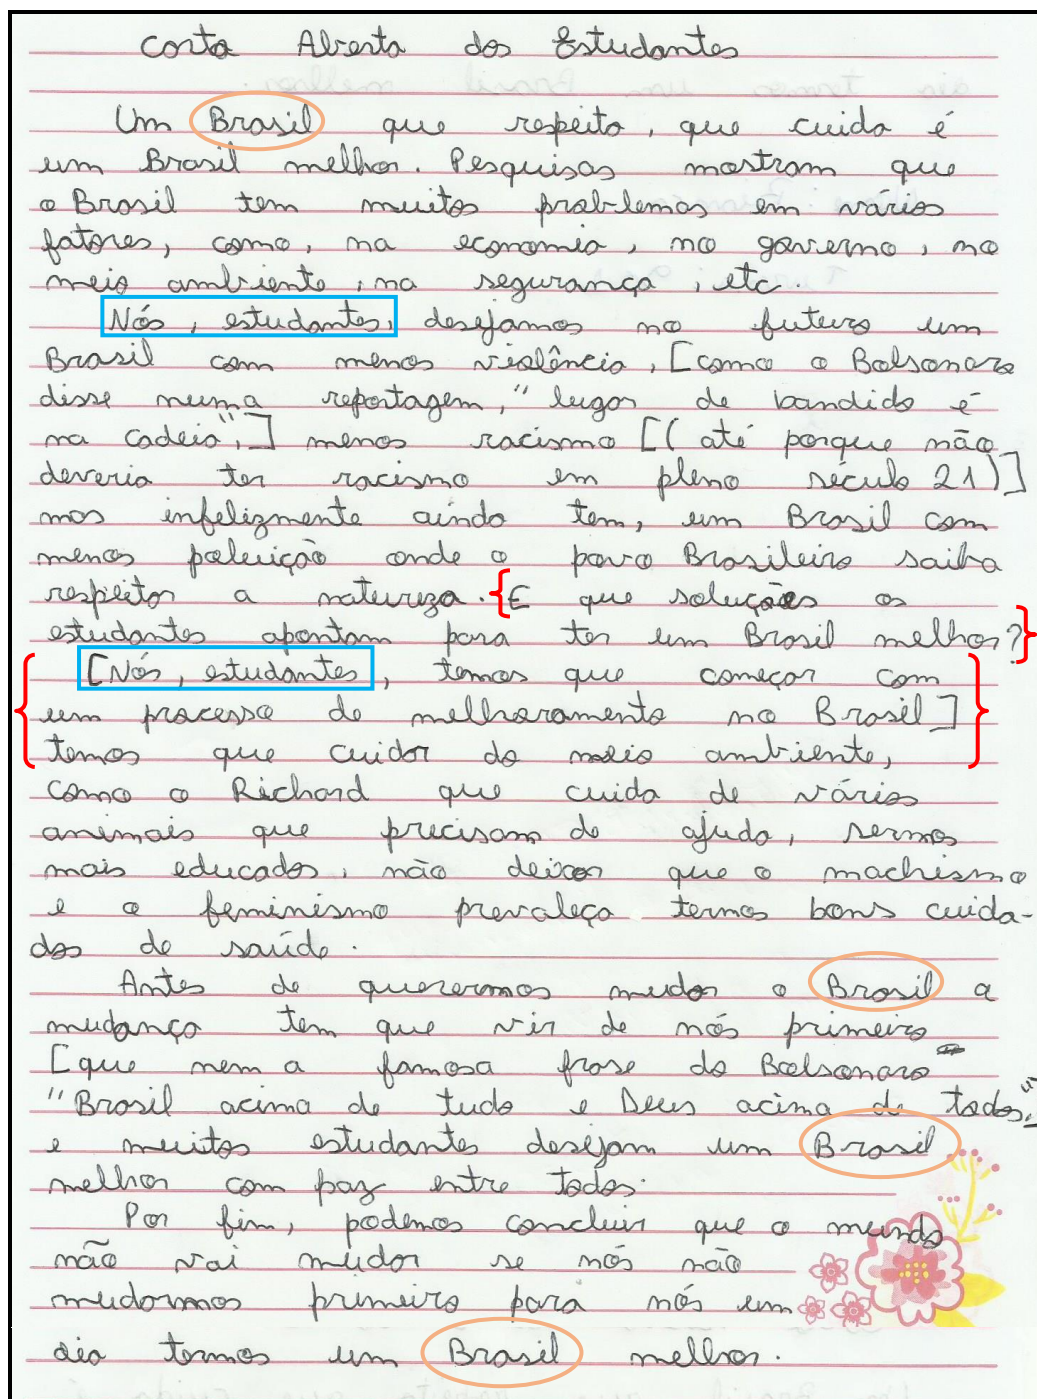 Carta Aberta dos Estudantes
Um Brasil que respeita, que cuida é
um Brasil melhor. Pesquisas mostram que
o Brasil tem muitos problemas em vários
fatores, como, na economia, no governo, no
meio ambiente, na segurança, etc.
Nós, estudantes, desejamos no futuro um
Brasil com menos violência, [como o Bolsonaro
disse numa reportagem, "lugar de bandido é
na cadeia",] menos racismo [(até porque não
deveria ter racismo em pleno século 21)]
mas infelizmente ainda tem, um Brasil com
menos poluição onde o povo Brasileiro saiba
respeitar a natureza. {E que soluções os
estudantes apontam para ter um Brasil melhor?}
{[Nós, estudantes, temos que começar com
um processo de melhoramento no Brasil]
temos que cuidar do meio ambiente,}
como o Richard que cuida de vários
animais que precisam de ajuda, sermos
mais educados, não deixar que o machismo
e o feminismo prevaleça termos bons cuida-
dos de saúde.
Antes de querermos mudar o Brasil a
mudança tem que vir de nós primeiro
[que nem a famosa frase do Bolsonaro
"Brasil acima de tudo e Deus acima de todos,"]
e muitos estudantes desejam um Brasil
melhor com paz entre todos.
Por fim, podemos concluir que o mundo
não vai mudar se nós não
mudarmos primeiro para nós um
dia termos um Brasil melhor.